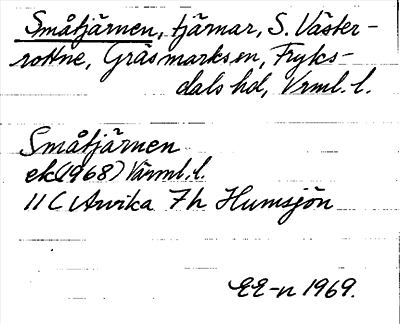 Småtjärnen, tjärnar, S. Väster-
rottne, Gräsmarks sn, Fryks-
dals hd, Vrml. l.
Småtjärnen
ek (1968) Värml. l.
11 C Arvika 7 h Humsjön
EE-n 1969.